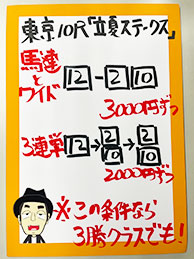 東京10R「立夏ステークス」
馬連とワイド 12-2 10
3000円ずつ
3連単 12→2 10→2 10
2000円ずつ
※この条件なら
3勝クラスでも!